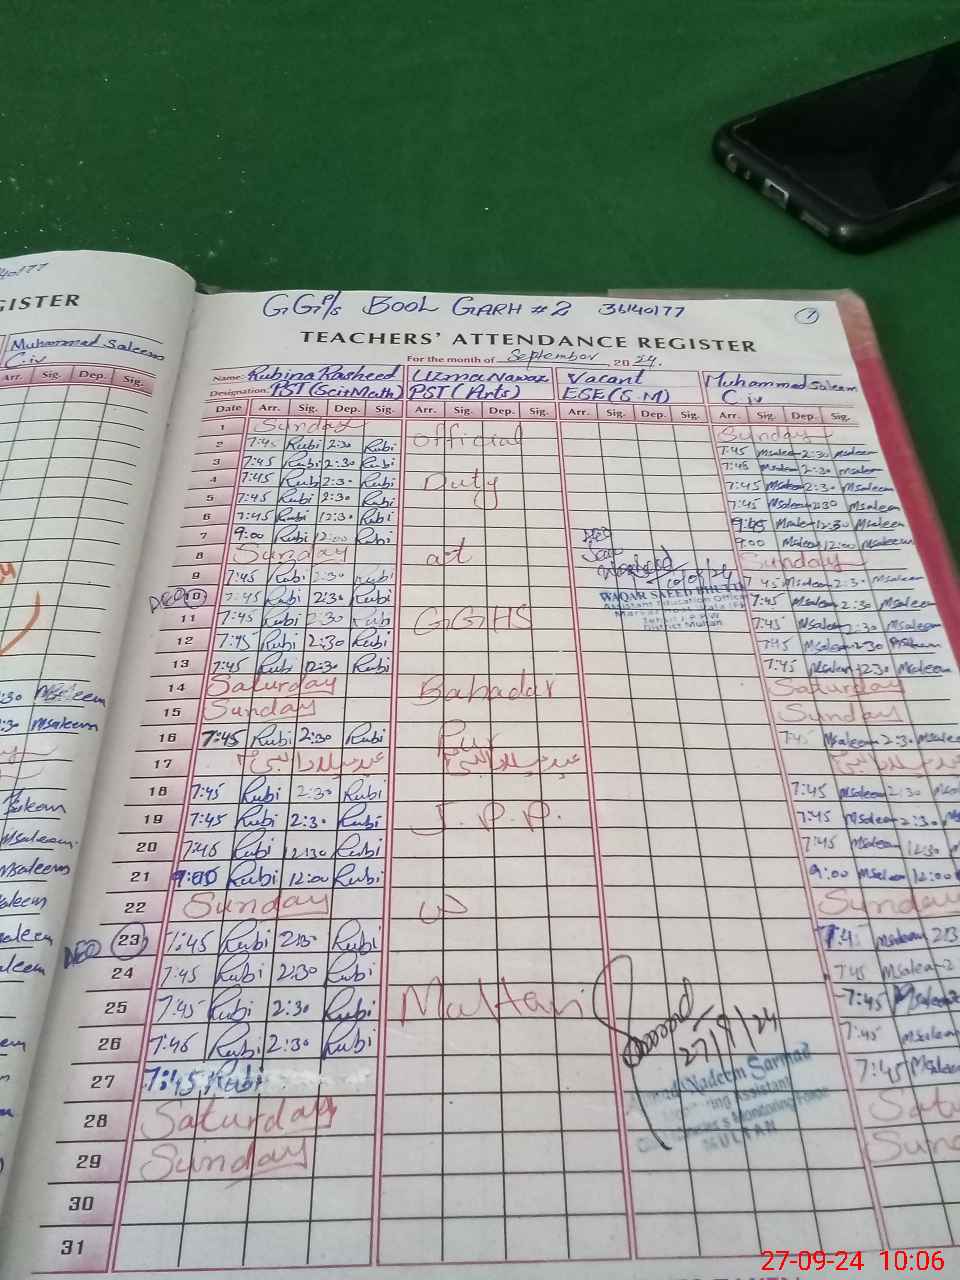 GGP/s BOOL GARH #2 36140177 1
TEACHERS' ATTENDANCE REGISTER
For the month of September 2024.
Name: Rubina Rasheed Uzma Nawaz Vacant Muhammad Saleem
Designation: PST (Sci+Math) PST (Arts) ESE (S.M) C.iv
Date Arr. Sig. Dep. Sig. Arr. Sig. Dep. Sig. Arr. Sig. Dep. Sig. Arr. Sig. Dep. Sig.
1 Sunday Sunday
2 7:45 Rubi 2:30 Rubi official 7:45 Msaleem 2:30 Msaleem
3 7:45 Rubi 2:30 Rubi 7:45 Msaleem 2:30 Msaleem
4 7:45 Rubi 2:30 Rubi Duty 7:45 Msaleem 2:30 Msaleem
5 7:45 Rubi 2:30 Rubi 7:45 Msaleem 2:30 Msaleem
6 7:45 Rubi 12:30 Rubi 12:30 Msaleem
7 9:00 Rubi 12:00 Rubi 9:00 12:00 Msaleem
8 Sunday at Sunday
9 7:45 Rubi 2:30 Rubi 7:45 Msaleem 2:30 Msaleem
10 7:45 Rubi 2:30 Rubi 7:45 Msaleem 2:30 Msaleem
WAQAR SAEED BHUTTA
Assistant Education Officer
District Multan
11 7:45 Rubi 2:30 Rubi GGHS 7:45 Msaleem 2:30 Msaleem
12 7:45 Rubi 2:30 Rubi 7:45 Msaleem 2:30
13 7:45 Rubi 12:30 Rubi 7:45 Msaleem 12:30 Msaleem
14 Saturday Bahadar Saturday
15 Sunday Sunday
16 7:45 Rubi 2:30 Rubi Pur 7:45 Msaleem 2:30 Msaleem
17 عید میلاد النبیؐ عید میلاد النبیؐ عید میلاد النبیؐ
18 7:45 Rubi 2:30 Rubi 7:45 Msaleem 2:30
19 7:45 Rubi 2:30 Rubi J.P.P. 7:45 Msaleem 2:30
20 7:45 Rubi 12:30 Rubi 7:45 Msaleem 12:30
21 9:00 Rubi 12:00 Rubi 9:00 Msaleem 12:00
22 Sunday Sunday
23 7:45 Rubi 2:30 Rubi 7:45 Msaleem 2:3
24 7:45 Rubi 2:30 Rubi 7:45 Msaleem 2
25 7:45 Rubi 2:30 Rubi Multan 7:45 Msaleem
26 7:45 Rubi 2:30 Rubi 7:45 Msaleem
27/9/24
27 7:45 Rubi 7:45 Msaleem
Nadeem Sarmad
Monitoring Assistant
Monitoring Force
MULTAN
28 Saturday Satu
29 Sunday Sund
30
31
40177
GISTER
Muhammad Saleem
C.iv
Arr. Sig. Dep. Sig.
:30 Msaleem
:30 Msaleem
27-09-24 10:06